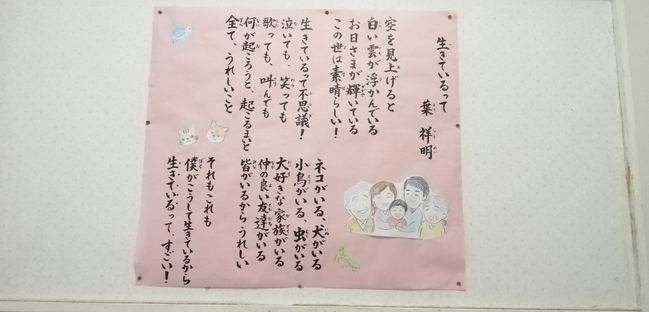 生きているって
葉 祥明
空を見上げると
白い雲が浮かんでいる
お日さまが輝いている
この世は素晴らしい！
生きているって不思議！
泣いても、笑っても
歌っても、叫んでも
何が起ころうと、起こるまいと
全て、うれしいこと
ネコがいる、犬がいる
小鳥がいる、虫がいる
大好きな家族がいる
仲の良い友達がいる
皆がいるから うれしい
それもこれも
僕がこうして生きているから
生きているって、すごい！